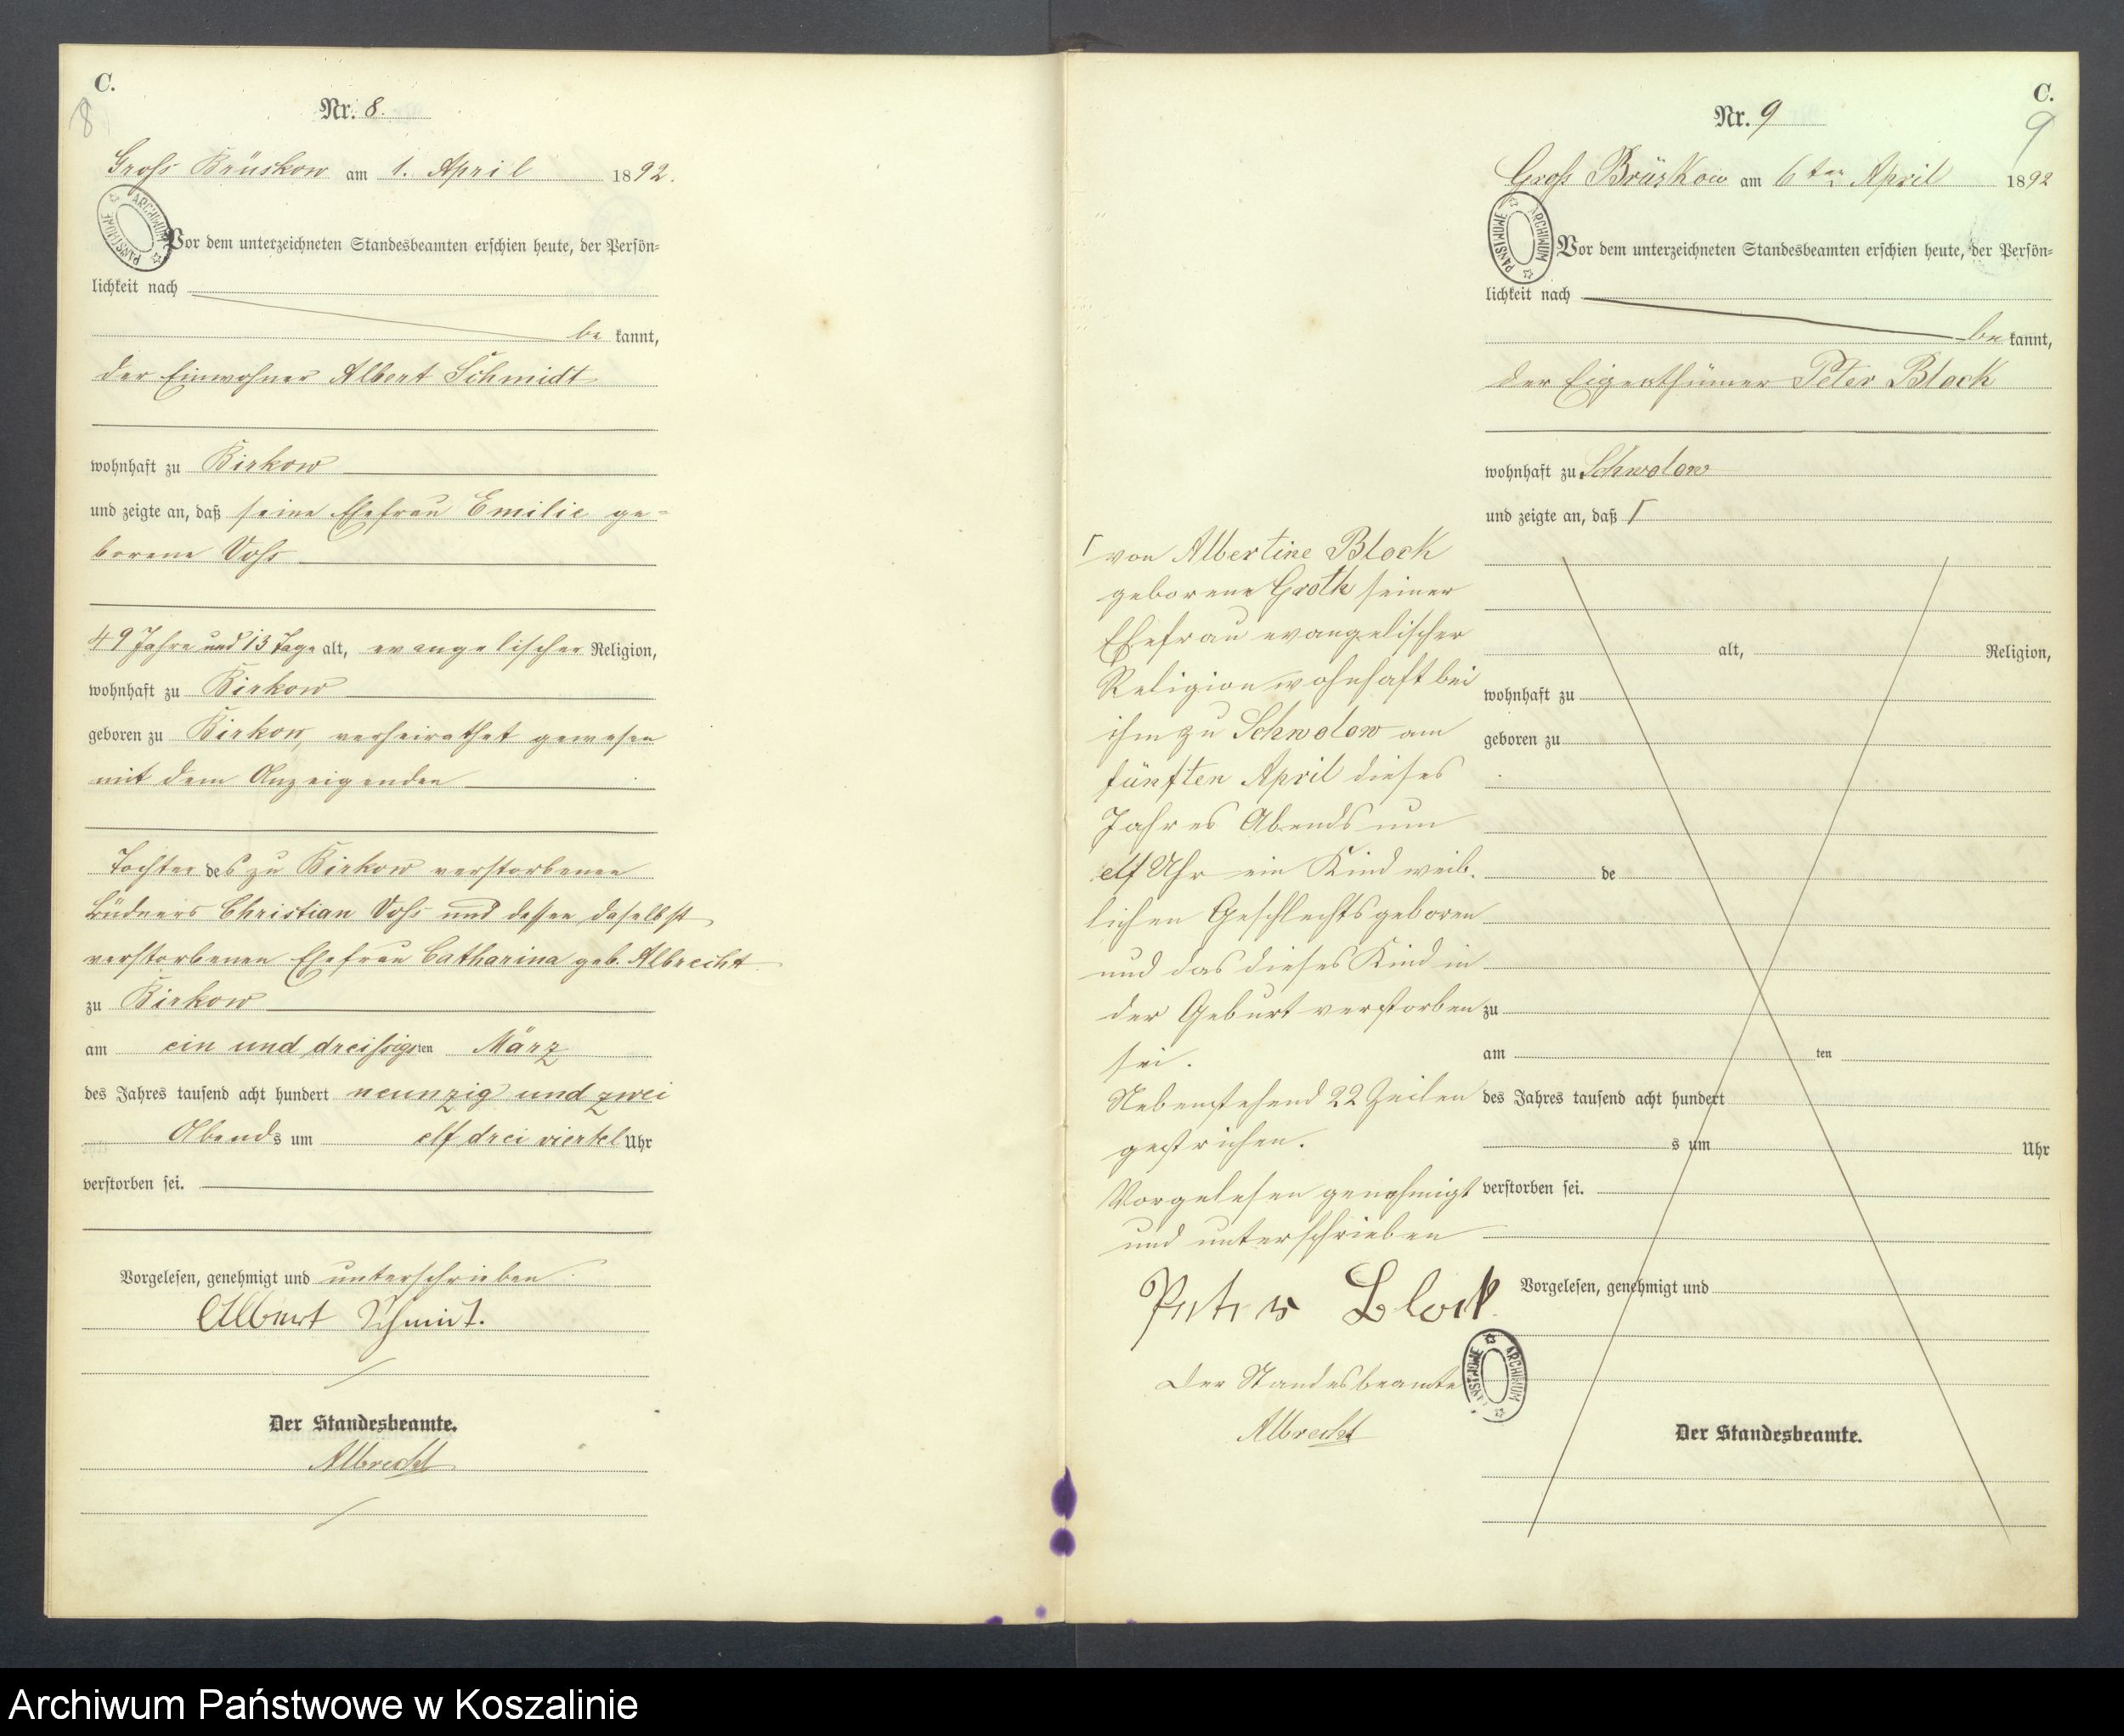 C.
8
Nr. 8.
Gross Brüskow am 1. April 1892.
PAŃSTWOWE ARCHIWUM
Vor dem unterzeichneten Standesbeamten erschien heute, der Persön-
lichkeit nach
be kannt,
der Einwohner Albert Schmidt
wohnhaft zu Birkow
und zeigte an, daß seine Ehefrau Emilie ge-
borene Voss
49 Jahre und 13 Tage alt, evangelischer Religion,
wohnhaft zu Birkow
geboren zu Birkow, verheirathet gewesen
mit dem Anzeigenden
Tochter des zu Birkow verstorbenen
Büdners Christian Voss und dessen daselbst
verstorbenen Ehefrau Catharina geb. Albrecht
zu Birkow
am ein und dreissigsten März
des Jahres tausend acht hundert neunzig und zwei
Abends um elf drei viertel Uhr
verstorben sei.
Vorgelesen, genehmigt und unterschrieben
Albert Schmit.
Der Standesbeamte.
Albrecht
C.
9
Nr. 9
Gross Brüskow am 6ten April 1892
PAŃSTWOWE ARCHIWUM
Vor dem unterzeichneten Standesbeamten erschien heute, der Persön-
lichkeit nach
be kannt,
der Eigenthümer Peter Block
wohnhaft zu Schwolow
und zeigte an, daß Γ
Γ von Albertine Block
geborene Groth seiner
Ehefrau evangelischer
Religion wohnhaft bei
ihm zu Schwolow am
fünften April dieses
Jahres Abends um
elf Uhr ein Kind weib.
lichen Geschlechts geboren
und das dieses Kind in
der Geburt verstorben
sei.
Nebenstehend 22 Zeilen
gestrichen.
Vorgelesen genehmigt
und unterschrieben
Peter Block
Der Standesbeamte
Albrecht
PAŃSTWOWE ARCHIWUM
alt, Religion,
wohnhaft zu
geboren zu
de
zu
am ten
des Jahres tausend acht hundert
s um Uhr
verstorben sei.
Vorgelesen, genehmigt und
Der Standesbeamte.
Archiwum Państwowe w Koszalinie